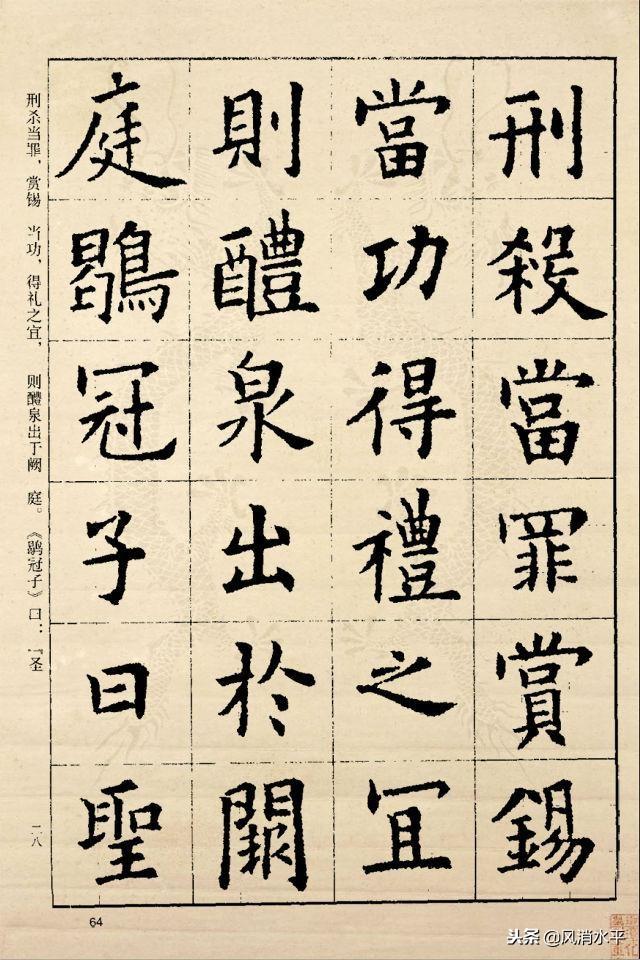 刑殺當罪賞錫
當功得禮之宜
則醴泉出於闕
庭鶡冠子曰聖
刑杀当罪，赏锡 当功，得礼之宜， 则醴泉出于阙 庭。《鹖冠子》曰：“圣
二八
64
头条 @风消水平